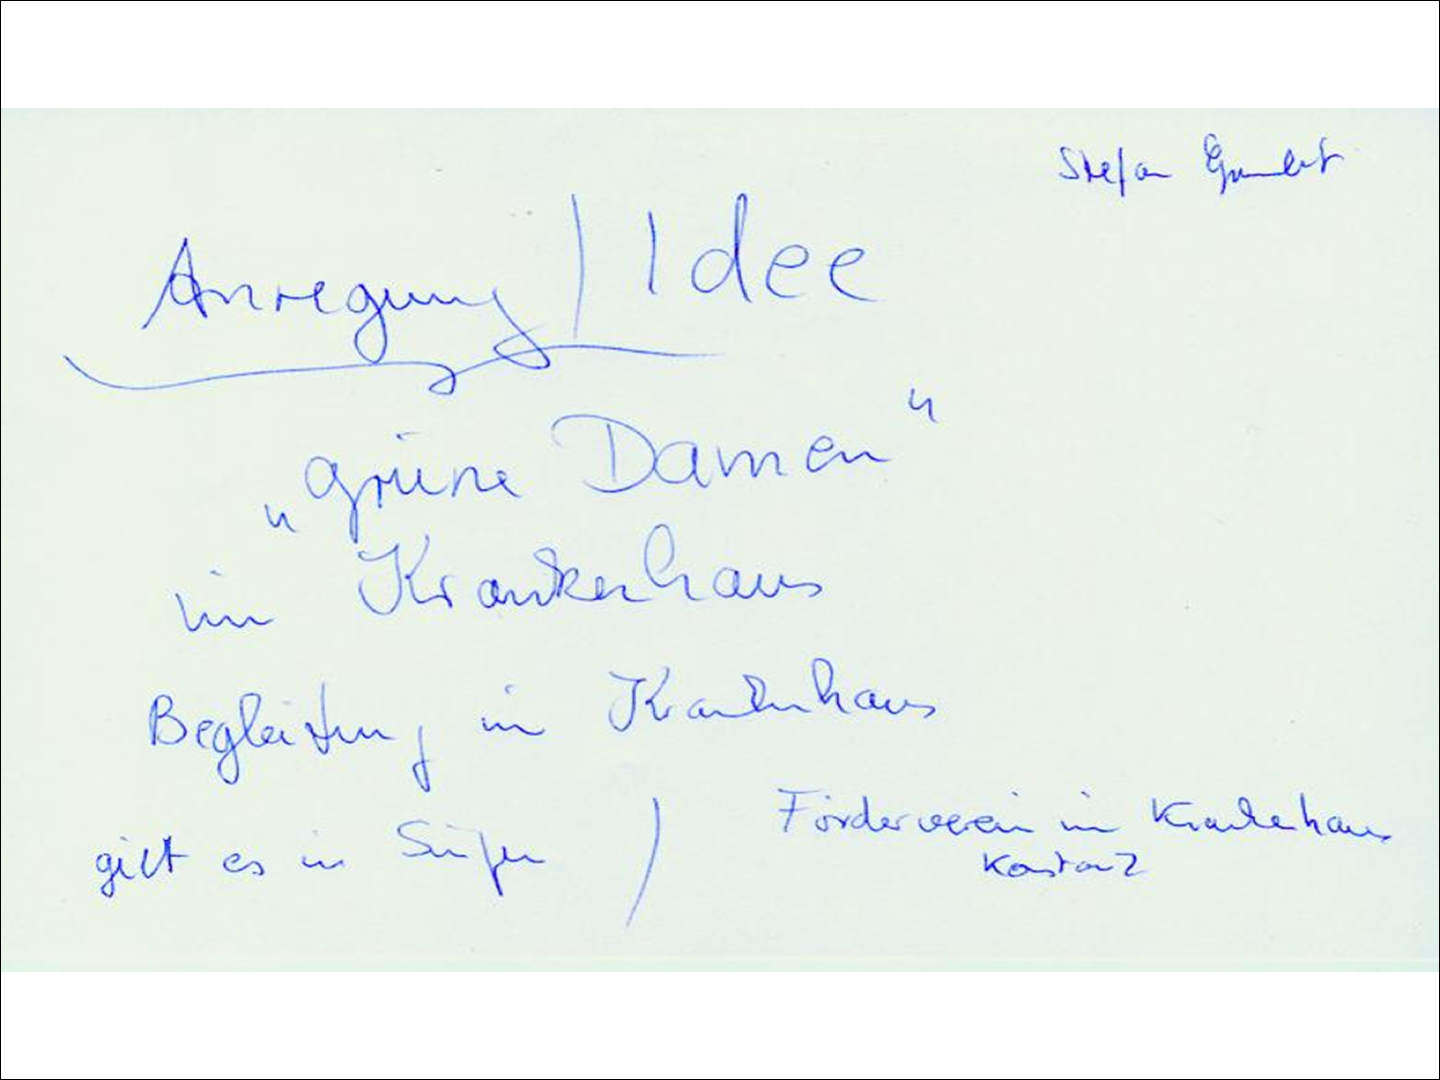 Stefan
Anregung / Idee
„grüne Damen“
im Krankenhaus
Begleitung im Krankenhaus
gibt es in /
Förderverein im Krankenhaus
Konstanz